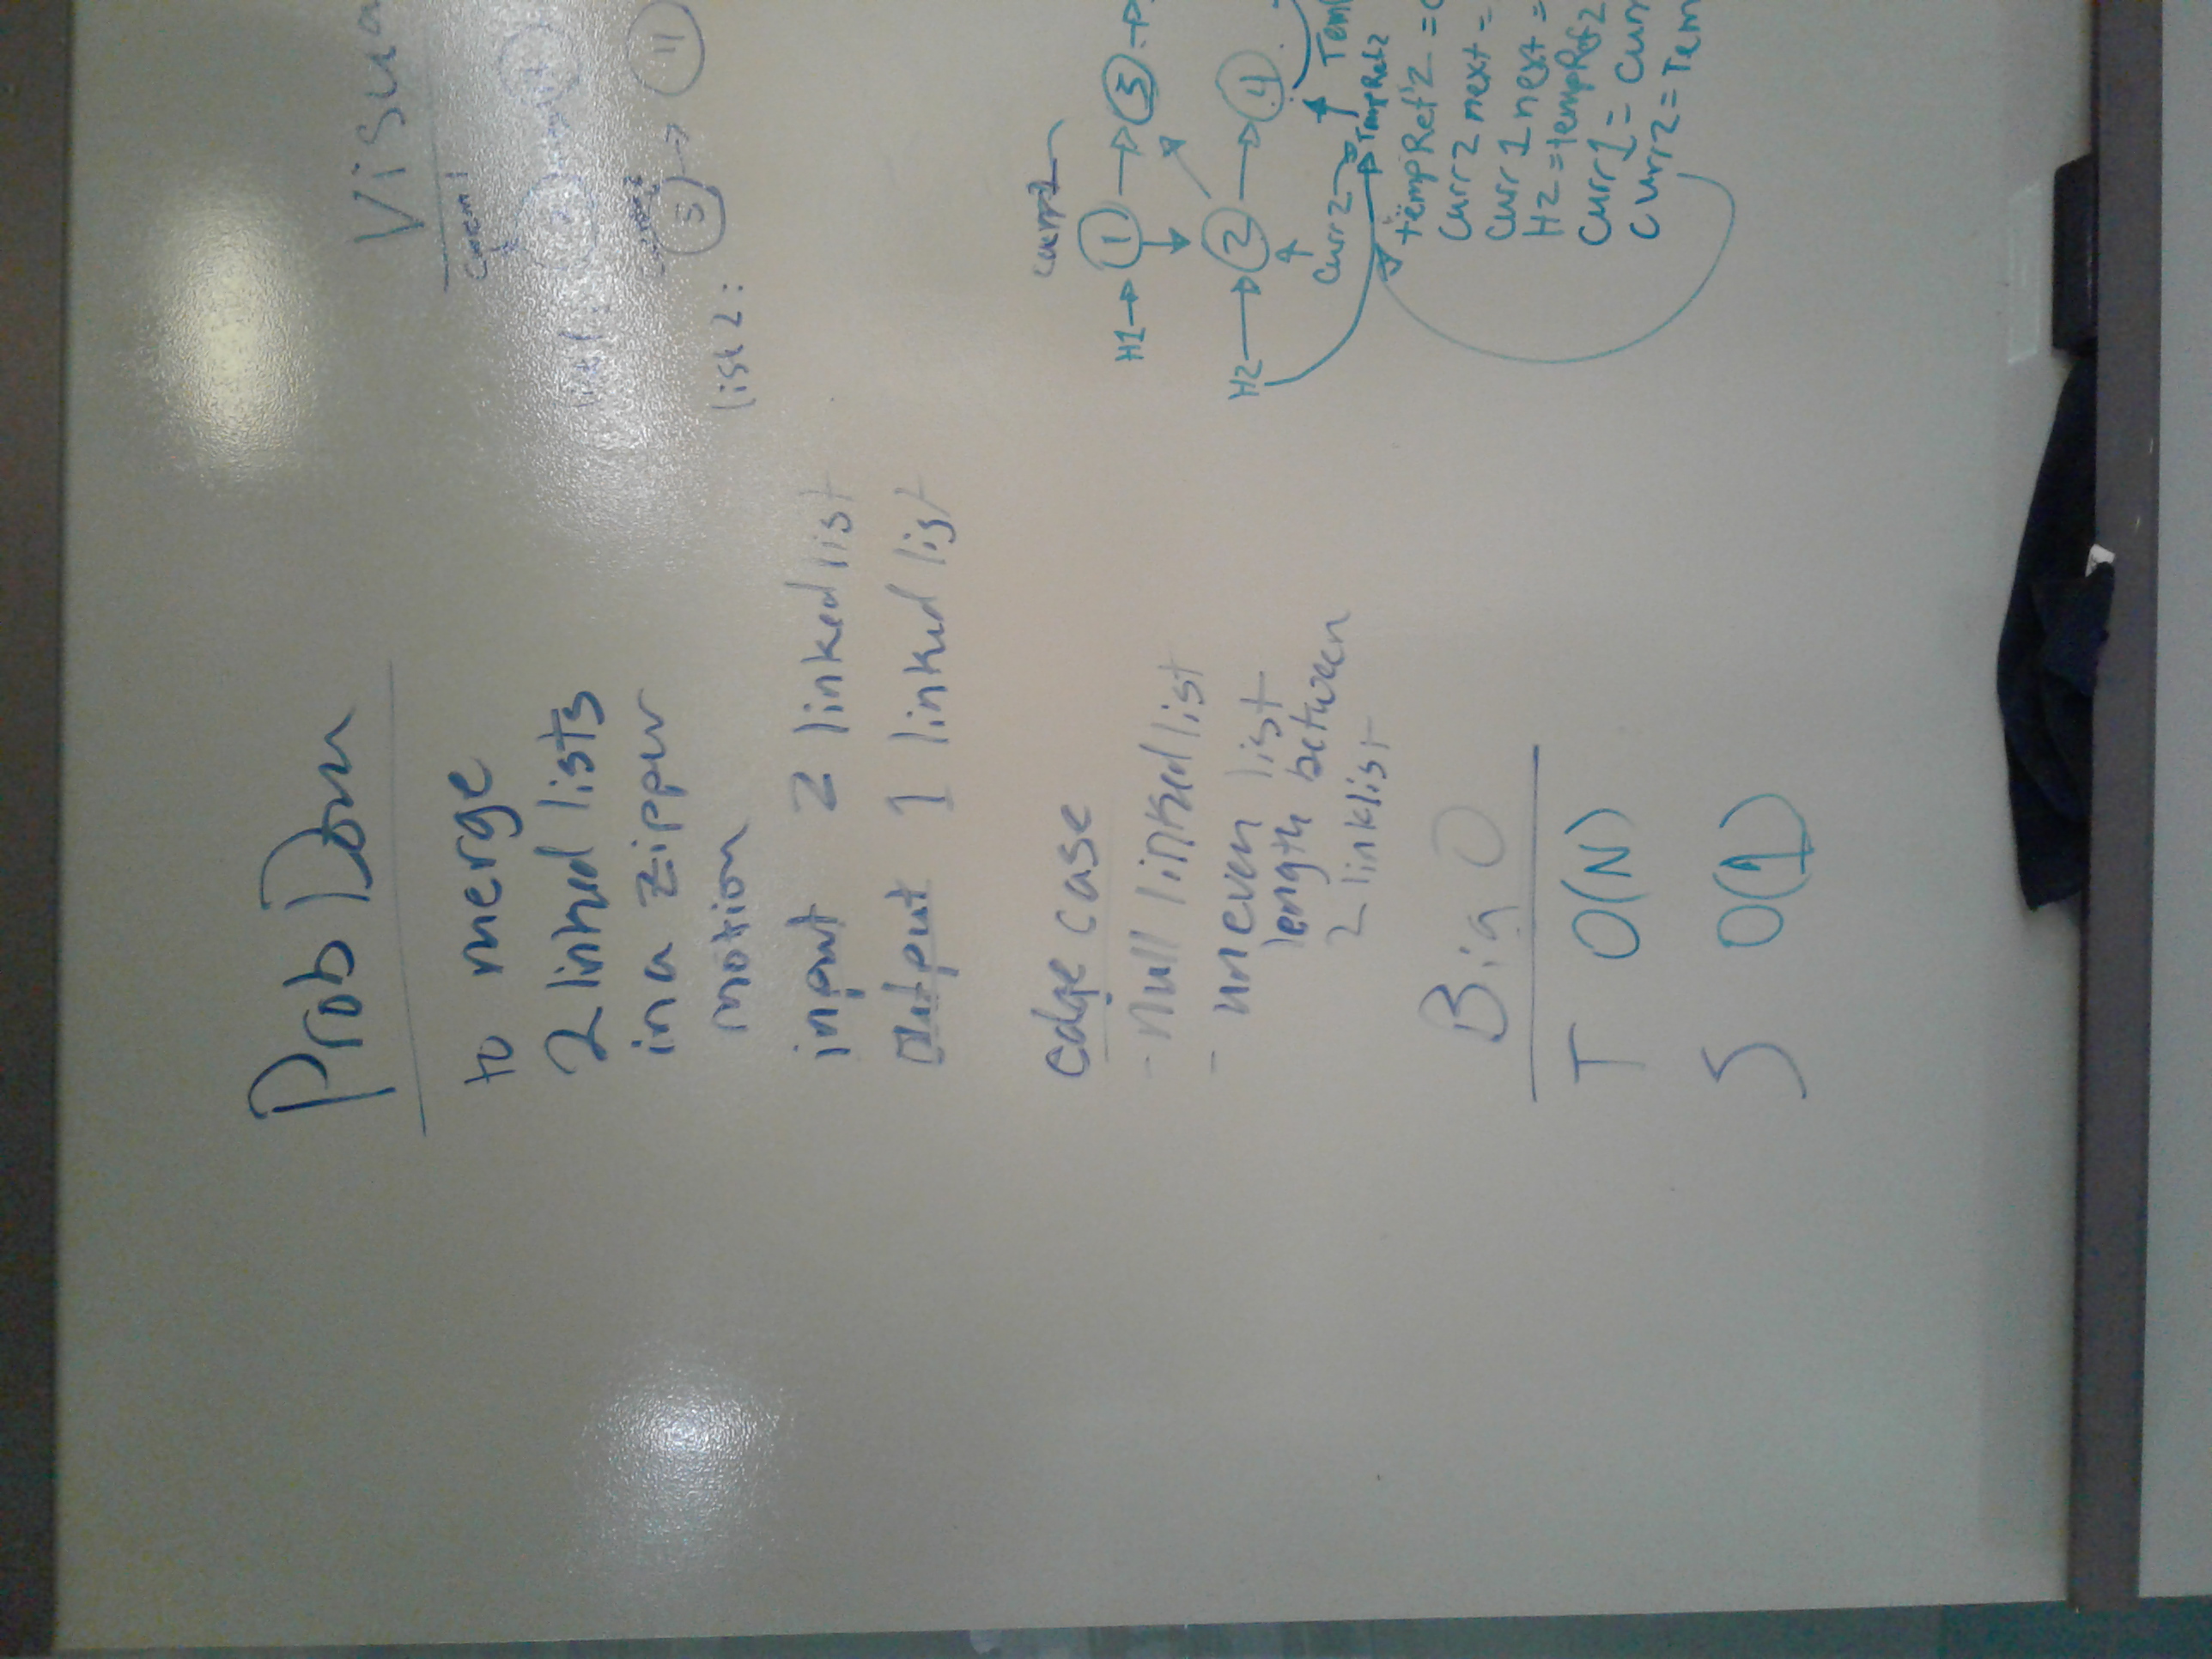 Prob Dom
to merge
2 linked lists
in a zipper
motion
input 2 linked list
output 1 linked list
edge case
- null linked list
- uneven list
length between
2 linklist
Big O
T O(N)
S O(1)
Visua
5 → 11
list 2:
H1 → 1 → 5 →
H2 → 2 → 4
Curr2
Tem
TempRef2
tempRef2 =
Curr2 next =
Curr1 next =
H2 = tempRef2
Curr1 = Curr
Curr2 = Tem